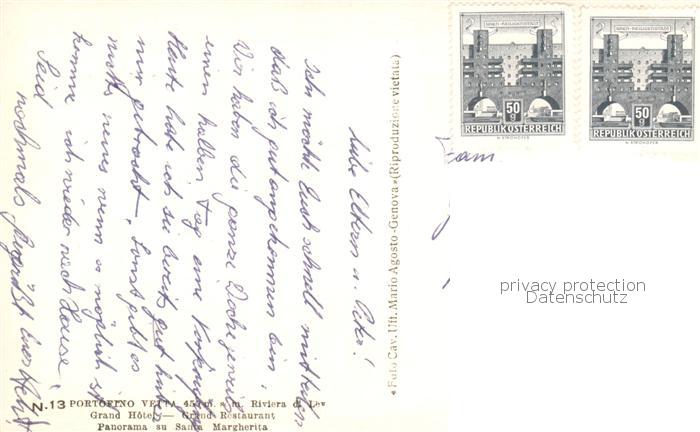 WIEN-HEILIGENSTADT
50 g
REPUBLIK ÖSTERREICH
H. STROHOFER
WIEN-HEILIGENSTADT
50 g
REPUBLIK ÖSTERREICH
H. STROHOFER
Fam.
Liebe Eltern u. Peter!
Ich möchte Euch schnell mitteilen
daß ich gut angekommen bin,
Wir haben die ganze Woche
einen halben Tag eine
Heute habe ich sie bereits gut hinter
mir gebracht. Sonst gibt es
nichts neues wenn es möglich ist
komme ich wieder nach Hause.
Seid
nochmals gegrüßt Eures
«Foto Cav. Uff. Mario Agosto-Genova» (Riproduzione vietata)
N. 13 PORTOFINO VETTA 45 m. s. m. Riviera di Lev
Grand Hôtel — Grand Restaurant
Panorama su Santa Margherita
privacy protection
Datenschutz